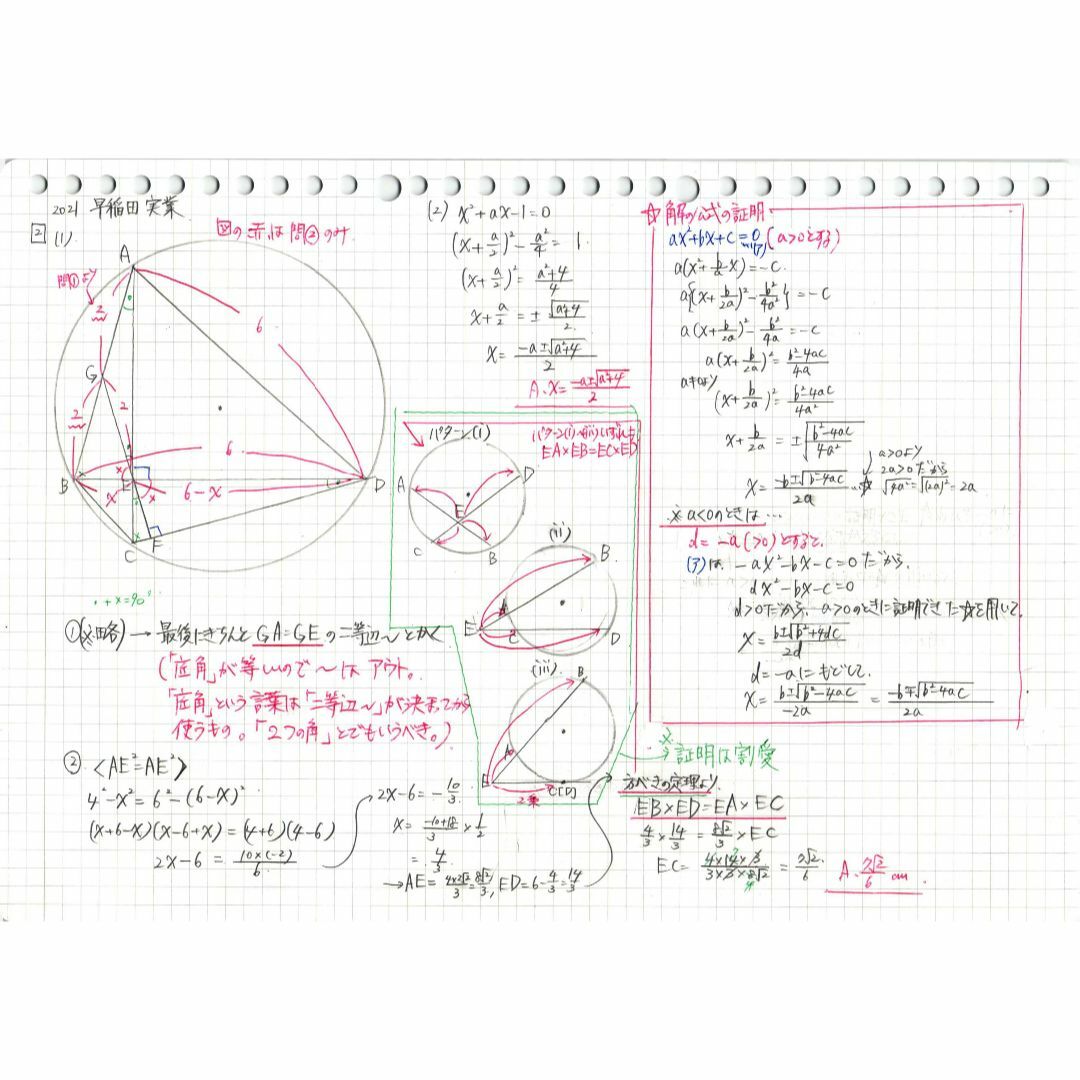 2021 早稲田実業
2
(1)
図の赤は問②のみ.
問①より
A
2
6
G
2
2
6
B
E
D
x
6-x
C
F
・+×=90°
①(※略) → 最後にきちんとGA=GEの二等辺〜とかく
(「底角」が等しいので〜はアウト。
「底角」という言葉は「二等辺〜」が決まってから
使うもの。「2つの角」とでもいうべき。)
② <AE²=AE²>
4²-x²=6²-(6-x)²
(x+6-x)(x-6+x)=(4+6)(4-6)
2x-6=10×(-2)/6
2x-6=-10/3
x=(-10+18)/3×1/2
=4/3
→AE=4×2√2/3=8√2/3, ED=6-4/3=14/3
(2) x²+ax-1=0
(x+a/2)²-a²/4=1
(x+a/2)²=(a²+4)/4
x+a/2=±√(a²+4)/2
x=(-a±√(a²+4))/2
A. x=(-a±√(a²+4))/2
パターン(i)
パターン(i)〜(iii)いずれも
EA×EB=EC×ED
A
D
E
C
B
(ii)
B
A
E
C
D
(iii)
B
A
E
C(D)
2乗
※
証明は割愛
方べきの定理より
EB×ED=EA×EC
4/3×14/3=8√2/3×EC
EC=4×14×3/3×3×8√2=7√2/6
A. 7√2/6 cm
☆解の公式の証明
ax²+bx+c=0 (a>0とする)
a(x²+b/a x)=-c
a{(x+b/2a)²-b²/4a²}=-c
a(x+b/2a)²-b²/4a=-c
a(x+b/2a)²=(b²-4ac)/4a
a≠0より
(x+b/2a)²=(b²-4ac)/4a²
x+b/2a=±√((b²-4ac)/4a²)
a>0より
2a>0だから
√4a²=√(2a)²=2a
x=(-b±√(b²-4ac))/2a …☆
※a<0のときは…
d=-a(>0)とすると,
(ア)は, -ax²-bx-c=0だから,
dx²-bx-c=0
d>0だから, a>0のときに証明できた☆を用いて,
x=(b±√(b²+4dc))/2d
d=-aにもどして,
x=(b±√(b²-4ac))/-2a=(-b∓√(b²-4ac))/2a